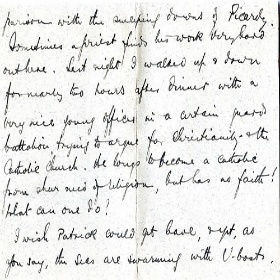 parison with the sweeping downs of Picardy.
Sometimes a priest finds his work very hard
out here. Last night I walked up & down
for nearly two hours after dinner with a
very nice young officer in a certain guard
battalion, trying to argue for Christianity & the
Catholic Church. He longs to become a Catholic
from sheer need of religion, but has no faith!
What can one do?
I wish Patrick could get leave, except, as
you say, the seas are swarming with U-boats